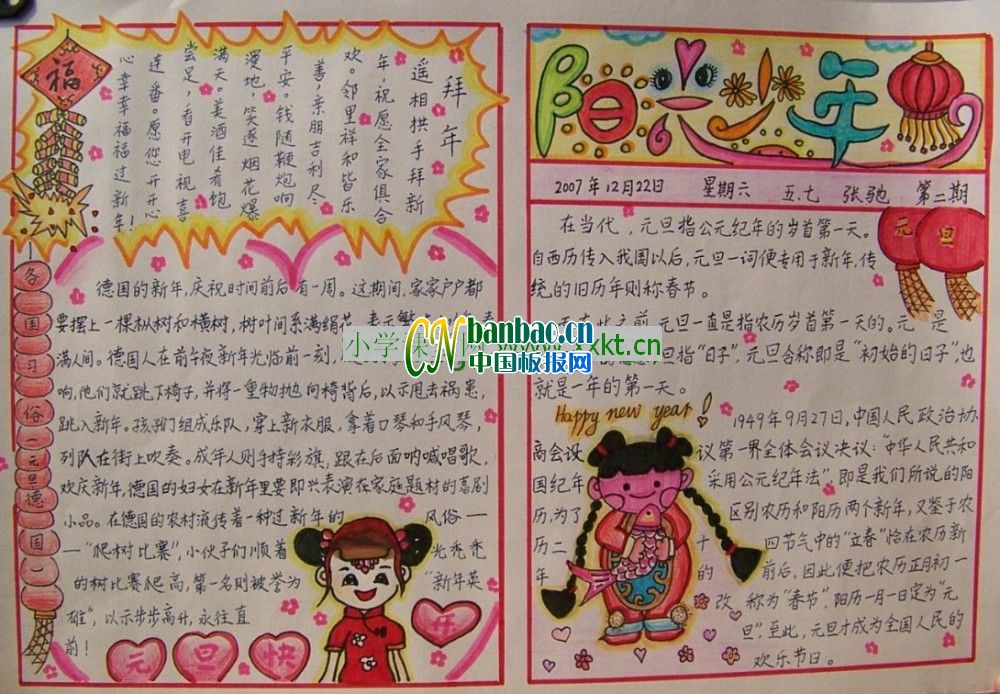 福
拜年
遥相拱手拜新
年,祝愿全家俱合
欢。邻里祥和皆乐
善,亲朋吉利尽
平安。钱随鞭炮响
漫地,笑逐烟花爆
满天。美酒佳肴饱
尝足,看开电视喜
连番。愿您开开心
心幸幸福福过新年!
各国习俗—元旦德国—
德国的新年,庆祝时间前后有一周。这期间,家家户户都
要摆上一棵枞树和横树,树叶间系满绢花,表示繁
满人间。德国人在前午夜新年光临前一刻,
响,他们就跳下椅子,并将一重物抛向椅背后,以示甩去祸患,
跳入新年。孩子们组成乐队,穿上新衣服,拿着口琴和手风琴,
列队在街上吹奏。成年人则手持彩旗,跟在后面呐喊唱歌,
欢庆新年,德国的妇女在新年里要即兴表演在家庭题材的喜剧
小品。在德国的农村流传着一种过新年的风俗—
—“爬树比赛”,小伙子们顺着光秃秃
的树比赛爬高,第一名则被誉为“新年英
雄”,以示步步高升,永往直
前!
元旦快乐
阳光少年
2007年12月22日 星期六 五.七 张驰 第二期
元旦
在当代,元旦指公元纪年的岁首第一天。
自西历传入我国以后,元旦一词便专用于新年,传
统的旧历年则称春节。
而在此之前,元旦一直是指农历岁首第一天的。元是
旦指“日子”,元旦合称即是“初始的日子”,也
就是一年的第一天。
Happy new year!
1949年9月27日,中国人民政治协
商会议第一界全体会议决议:“中华人民共和
国纪年采用公元纪年法”,即是我们所说的阳
历,为了区别农历和阳历两个新年,又鉴于农
历二十四节气中的“立春”恰在农历新
年的前后,因此便把农历正月初一
改称为“春节”,阳历一月一日定为“元
旦”,至此,元旦才成为全国人民的
欢乐节日。
banbao.cn
中国板报网
小学课
xkt.cn